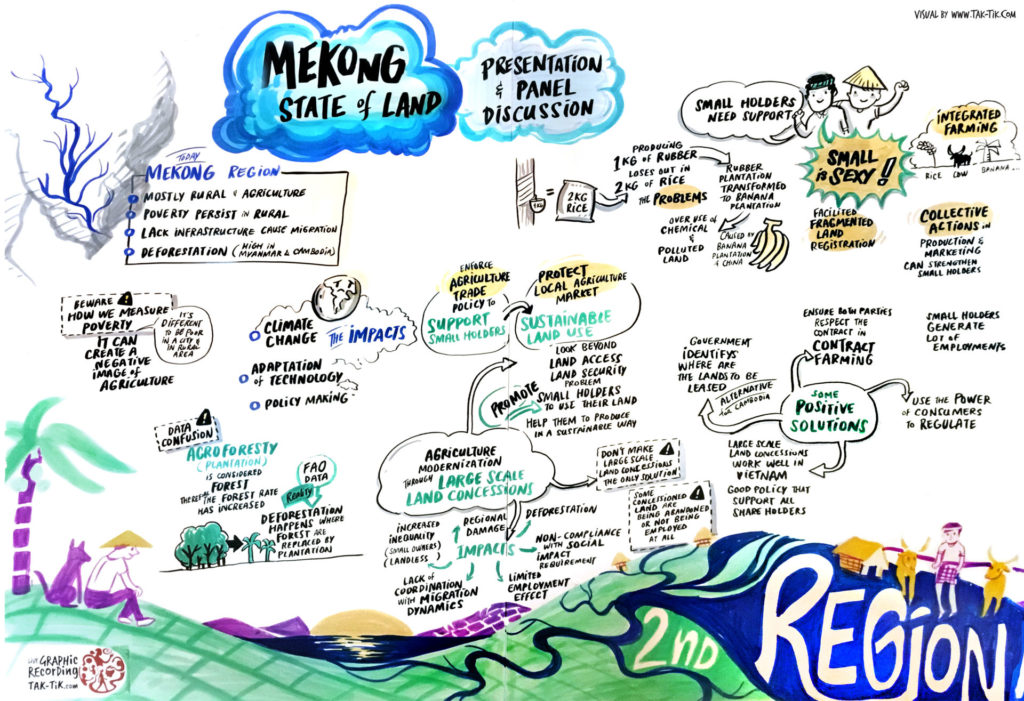 VISUAL BY WWW.TAK-TIK.COM
MEKONG
STATE of LAND
PRESENTATION
& PANEL
DISCUSSION
TODAY
MEKONG REGION
MOSTLY RURAL & AGRICULTURE
POVERTY PERSIST IN RURAL
LACK INFRASTRUCTURE CAUSE MIGRATION
DEFORESTATION (HIGH IN
MYANMAR & CAMBODIA)
1KG
=
2KG
RICE
PRODUCING
1KG OF RUBBER
LOSES OUT IN
2KG OF RICE
THE PROBLEMS
RUBBER
PLANTATION
TRANSFORMED
TO BANANA
PLANTATION
OVER USE OF
CHEMICAL
&
POLLUTED
LAND
CAUSED BY
BANANA
PLANTATION
& CHINA
SMALL HOLDERS
NEED SUPPORT
SMALL
IS SEXY!
FACILITED
FRAGMENTED
LAND
REGISTRATION
INTEGRATED
FARMING
RICE
COW
BANANA...
COLLECTIVE
ACTIONS IN
PRODUCTION &
MARKETING
CAN STRENGTHEN
SMALL HOLDERS
BEWARE
HOW WE MEASURE
POVERTY
IT'S
DIFFERENT
TO BE POOR
IN A CITY &
IN RURAL
AREA
IT CAN
CREATE A
NEGATIVE
IMAGE OF
AGRICULTURE
CLIMATE
CHANGE
THE IMPACTS
ADAPTATION
OF TECHNOLOGY
POLICY MAKING
ENFORCE
AGRICULTURE
TRADE
POLICY TO
SUPPORT
SMALL HOLDERS
PROTECT
LOCAL AGRICULTURE
MARKET
SUSTAINABLE
LAND USE
LOOK BEYOND
LAND ACCESS
LAND SECURITY
PROBLEM
PROMOTE
SMALL HOLDERS
TO USE THEIR LAND
HELP THEM TO PRODUCE
IN A SUSTAINABLE WAY
DATA
CONFUSION
AGROFORESTY
(PLANTATION)
IS CONSIDERED
FOREST
THE FOREST RATE
HAS INCREASED
FAO
DATA
REALITY
DEFORESTATION
HAPPENS WHERE
FOREST ARE
REPLACED BY
PLANTATION
AGRICULTURE
MODERNIZATION
THROUGH LARGE SCALE
LAND CONCESSIONS
DON'T MAKE
LARGE SCALE
LAND CONCESSIONS
THE ONLY SOLUTION
SOME
CONCESSIONED
LAND ARE
BEING ABANDONED
OR NOT BEING
EMPLOYED
AT ALL
IMPACTS
INCREASED
INEQUALITY
(SMALL OWNERS)
(LANDLESS
DEGIONAL
DAMAGE
DEFORESTATION
NON-COMPLIANCE
WITH SOCIAL
IMPACT
REQUIREMENT
LACK OF
COORDINATION
WITH MIGRATION
DYNAMICS
LIMITED
EMPLOYMENT
EFFECT
SOME
POSITIVE
SOLUTIONS
GOVERNMENT
IDENTIFYS
WHERE ARE
THE LANDS TO BE
LEASED
ALTERNATIVE
for CAMBODIA
ENSURE BOTH PARTIES
RESPECT THE
CONTRACT IN
CONTRACT
FARMING
SMALL HOLDERS
GENERATE
LOT OF
EMPLOYMENTS
USE THE POWER
OF CONSUMERS
TO REGULATE
LARGE SCALE
LAND CONCESSIONS
WORK WELL IN
VIETNAM
GOOD POLICY THAT
SUPPORT ALL
SHARE HOLDERS
2nd
REGION
LIVE GRAPHIC
RECORDING
TAK-TIK.com